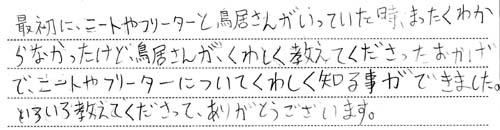 最初に、ニートやフリーターと鳥居さんがいっていた時、まったくわか
らなかったけど鳥居さんが、くわしく教えてくださったおかげ
で、ニートやフリーターについてくわしく知る事ができました。
いろいろ教えてくださって、ありがとうございます。